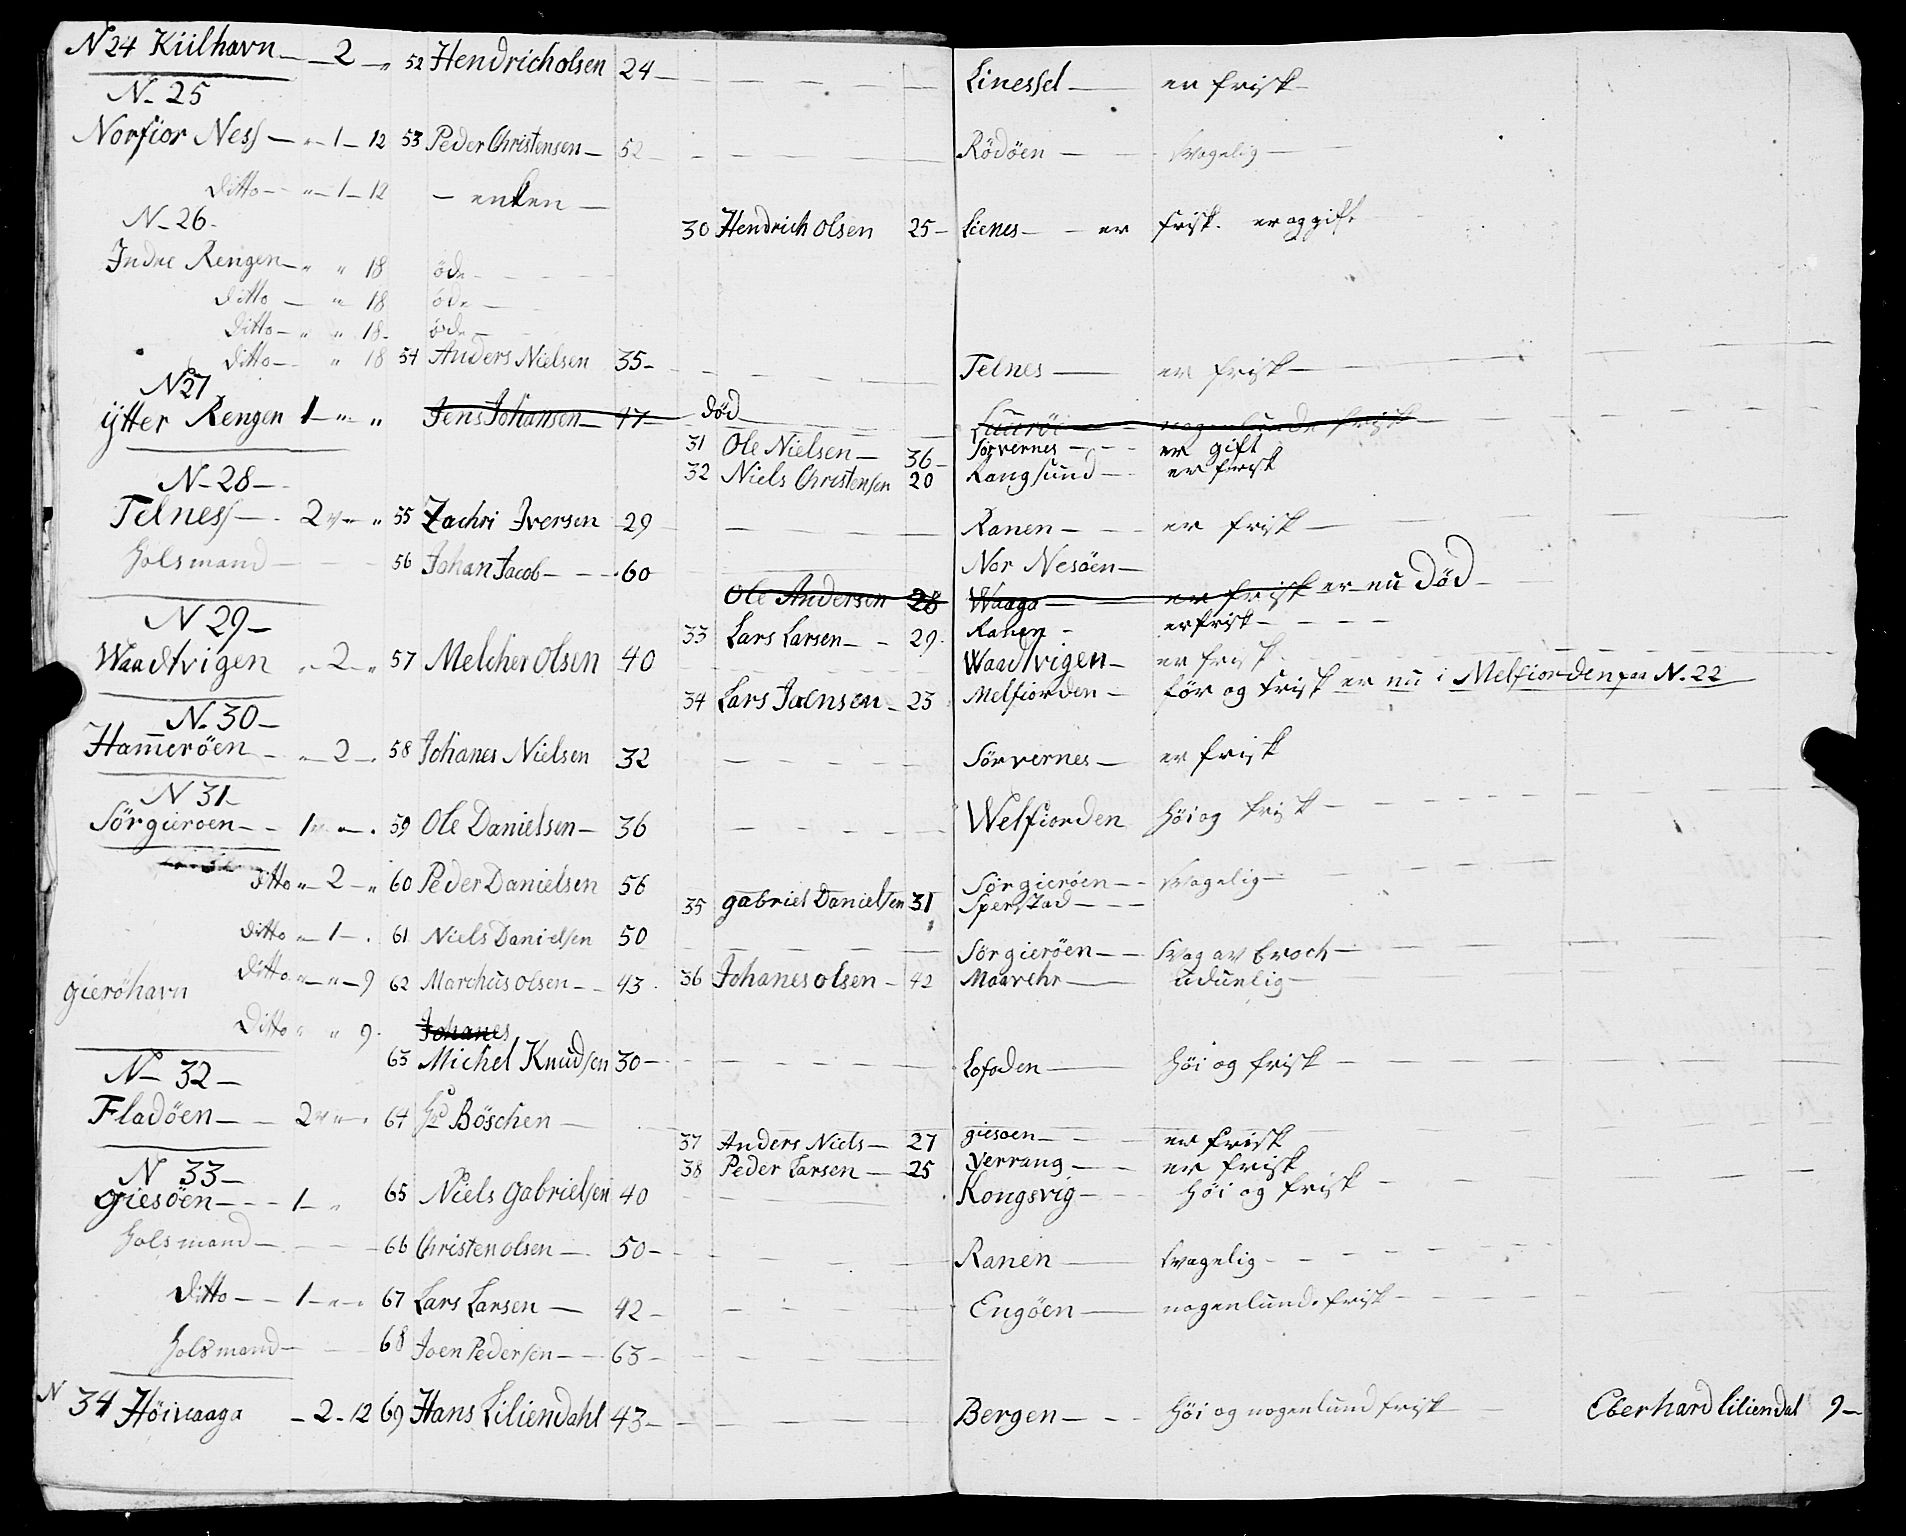 N 24 Kiilhavn — 2 „ 52 Hendrich olsen 24 — Linessel — er frisk
N. 25
Norfior Ness — „ 1 — 12 53 Peder Christensen — 52 — Rödöen — svagelig —
Ditto — „ 1 — 12 — enken —
N. 26. 30 Hendrich olsen 25 — Lienes — er frisk. er og gift
Indre Rengen — „ „ 18 öde
Ditto — „ 18 öde —
Ditto — „ „ 18 — öde —
Ditto — „ 18 54 Anders Nielsen 35 — Telnes — er frisk —
N 27
ÿtter Rengen 1 — „ „ Jens Johansen — 47 — död Luuröe — nogenlunde frisk
31 Ole Nielsen — 36 — Sörvernes — er gift
32 Niels Christensen 20 Rangsund — er frisk
N. 28 —
Telness — 2 v „ „ 55 Zachri Iversen 29 — Ranen — er frisk —
Holsmand — 56 Johan Jacob — 60 Nor Nesöen —
Ole Andersen 28 Waaga — er frisk er nu död —
N 29 —
33 Lars Larsen — 29 Ranen — er frisk —
Waadtvigen „ 2 „ 57 Melcher Olsen 40 Waadtvigen — er frisk
34 Lars Joensen — 23 Melfiorden — för og frisk er nu i Melfiorden paa N. 22
N. 30 —
Hameröen — „ 2 — 58 Johanes Nielsen 32 Sörvernes — er frisk
N 31 —
Sörgieroen — 1 „ — 59 Ole Danielsen — 36 Welfiorden höi og frisk —
Ditto „ 2 — „ 60 Peder Danielsen 56 Sörgieröen — svagelig —
35 gabriel Danielsen 31 Sperstad —
Ditto „ 1 — 61 Niels Danielsen 50 Sörgieröen — svag av broch —
Ditto „ — „ — 9 62 Marchus olsen — 43 36 Johanes olsen — 42 Maavehr — udunlig —
gieröhavn
Ditto „ „ 9. Johanes
63 Michel Knudsen 30 — Lofoden — höi og frisk —
N — 32 —
Fladöen — 2 v „ 64 Böschen —
37 Anders Niels — 27 giesoen — er frisk
N 33 — 38 Peder Larsen — 25 Verrang — er frisk
giesöen — 1 — „ 65 Niels gabrielsen 40 Kongsvig — höi og frisk
Holsmand — 66 Christen olsen — 50 — Ranen svagelig —
Ditto — 1 — „ — 67 Lars Larsen — 42 — Engöen — nogenlunde frisk
Holsmand — 68 Joen Pedersen — 63 —
N 34 Höivaaga — 2 — 12 69 Hans Liliendahl 43 — Bergen — höi og nogenlund frisk Eberhard liliendal 9 —